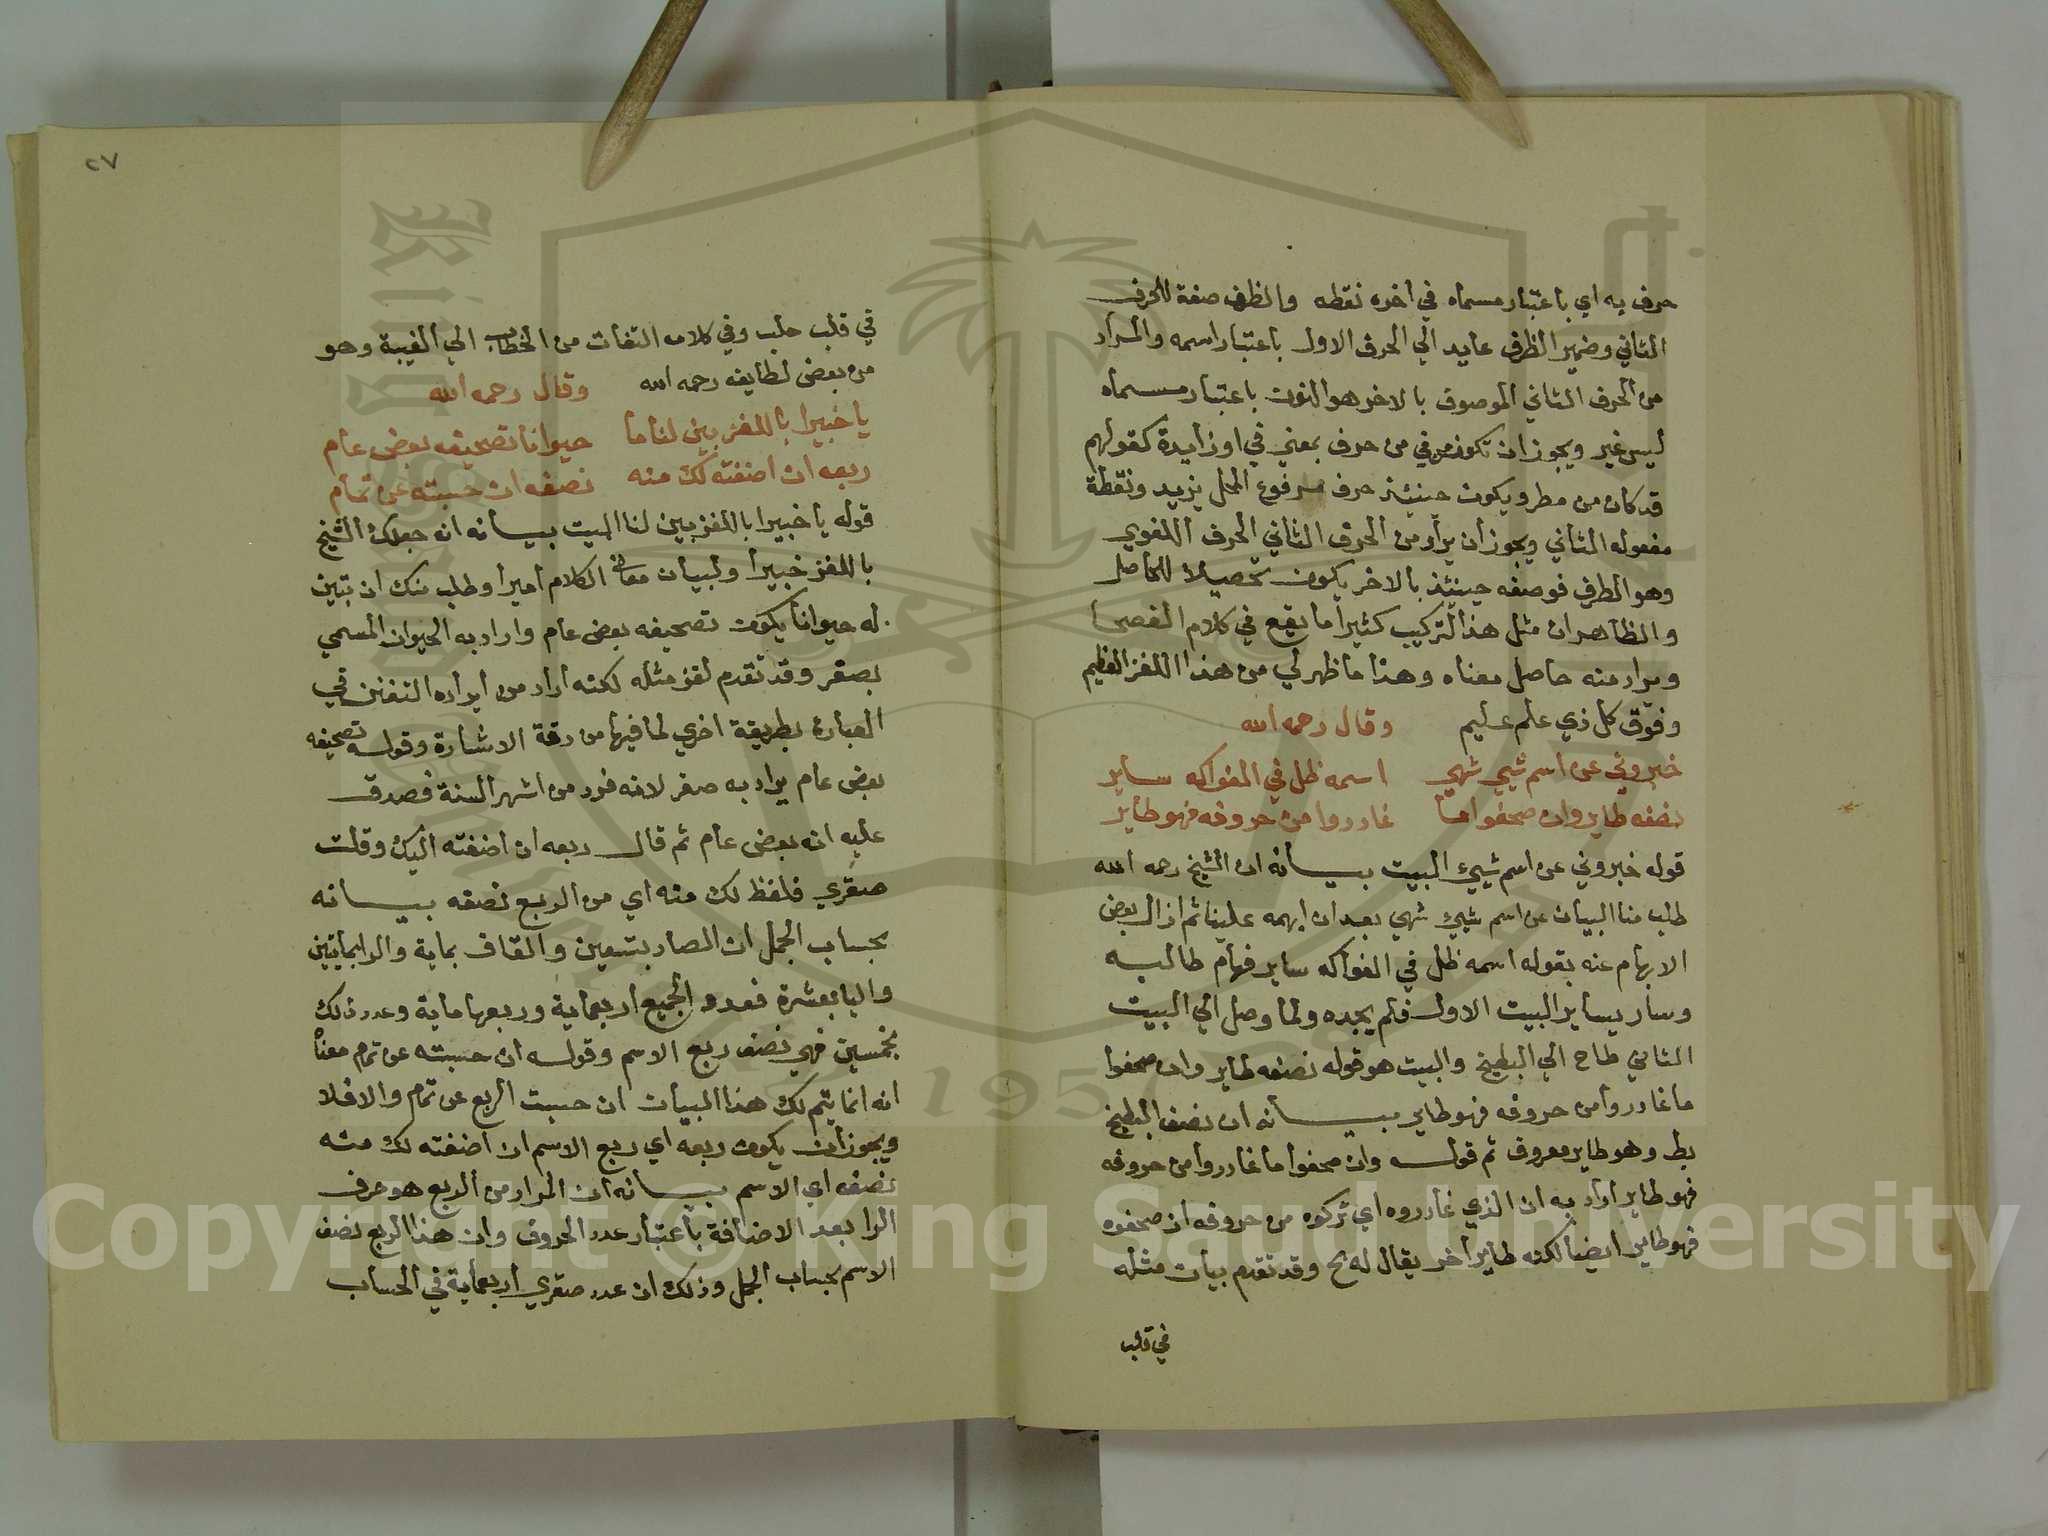 حرف به اي باعتبار مسماه في اخره نقطه والظرف صفة للحرف
الثاني وضمير الظرف عايد الي الحرف الاول باعتبار اسمه والمراد
من الحرف الثاني الموصوف بالاخر هو النون باعتبار مسماه
ليس غير ويجوز ان تكون من في من حرف بمعني في او زايدة كقولهم
قد كان من مطر ويكون حينئذ حرف مرفوع المحل يزيد ونقطة
مفعوله الثاني ويجوز ان يراد من الحرف الثاني الحرف اللغوي
وهو الطرف فوصفه حينئذ بالاخر يكون تحصيلا للحاصل
والظاهر ان مثل هذا التركيب كثيرا ما يقع في كلام الفصحا
ويراد منه حاصل معناه وهذا ما ظهر لي من هذا اللغز العظيم
وفوق كل ذي علم عليم وقال رحمه الله
خبروني عن اسم شيي شهي اسمه ظل في الفواكه ساير
نصفه طاير وان صحفوا ما غادروا من حروفه فهو طاير
قوله خبروني عن اسم شيئ البيت بيانه ان الشيخ رحمه الله
طلب منا البيان عن اسم شيئ شهي بعد ان ابهمه علينا ثم ازال بعض
الابهام عنه بقوله اسمه ظل في الفواكه ساير فهام طالبه
وسار يساير البيت الاول فلم يجده ولما وصل الي البيت
الثاني طاح الي البطيخ والبيت هو قوله نصفه طاير وان صحفوا
ما غادروا من حروفه فهو طاير بيانه ان نصف البطيخ
بط وهو طاير معروف ثم قوله وان صحفوا ما غادروا من حروفه
فهو طاير اراد به ان الذي غادروه اي تركوه من حروفه ان صحفوه
فهو طاير ايضا لكنه طاير اخر يقال له بح وقد تقدم بيان مثله
في قلب
٢٧
في قلب حلب وفي كلامه التفات من الخطاب الي الغيبة وهو
من بعض لطايفه رحمه الله وقال رحمه الله
يا خبيرا باللغز بين لنا ما حيوانا تصحيفه بعض عام
ربعه ان اضفته لك منه نصفه ان حسبته عن تمام
قوله يا خبيرا باللغز بين لنا البيت بيانه انه جعلك الشيخ
باللغز خبيرا ولبيان معاني الكلام اميرا وطلب منك ان تبين
له حيوانا يكون تصحيفه بعض عام واراد به الحيوان المسمي
بصقر وقد تقدم لغز مثله لكنه اراد من ايراده التفنن في
العبارة بطريقة اخري لما فيها من دقة الاشارة وقوله تصحيفه
بعض عام يراد به صفر لانه فرد من اشهر السنة فصدق
عليه انه بعض عام ثم قال ربعه ان اضفته اليك وقلت
صقري فلفظ لك منه اي من الربع نصفه بيانه
بحساب الجمل ان الصاد بتسعين والقاف بماية والرا بمايتين
واليا بعشرة فعدد الجميع اربعماية وربعها ماية وعدد ذلك
بخمسين فهي نصف ربع الاسم وقوله ان حسبته عن تمام معناه
انه انما يتم لك هذا البيان ان حسبت الربع عن تمام والا فلا
ويجوز ان يكون ربعه اي ربع الاسم ان اضفته لك منه
نصفه اي الاسم بيانه ان المراد من الربع هو حرف
الرا بعد الاضافة باعتبار عدد الحروف وان هذا الربع نصف
الاسم بحساب الجمل وذلك ان عدد صقري اربعماية في الحساب
Copyright © King Saud University
1957